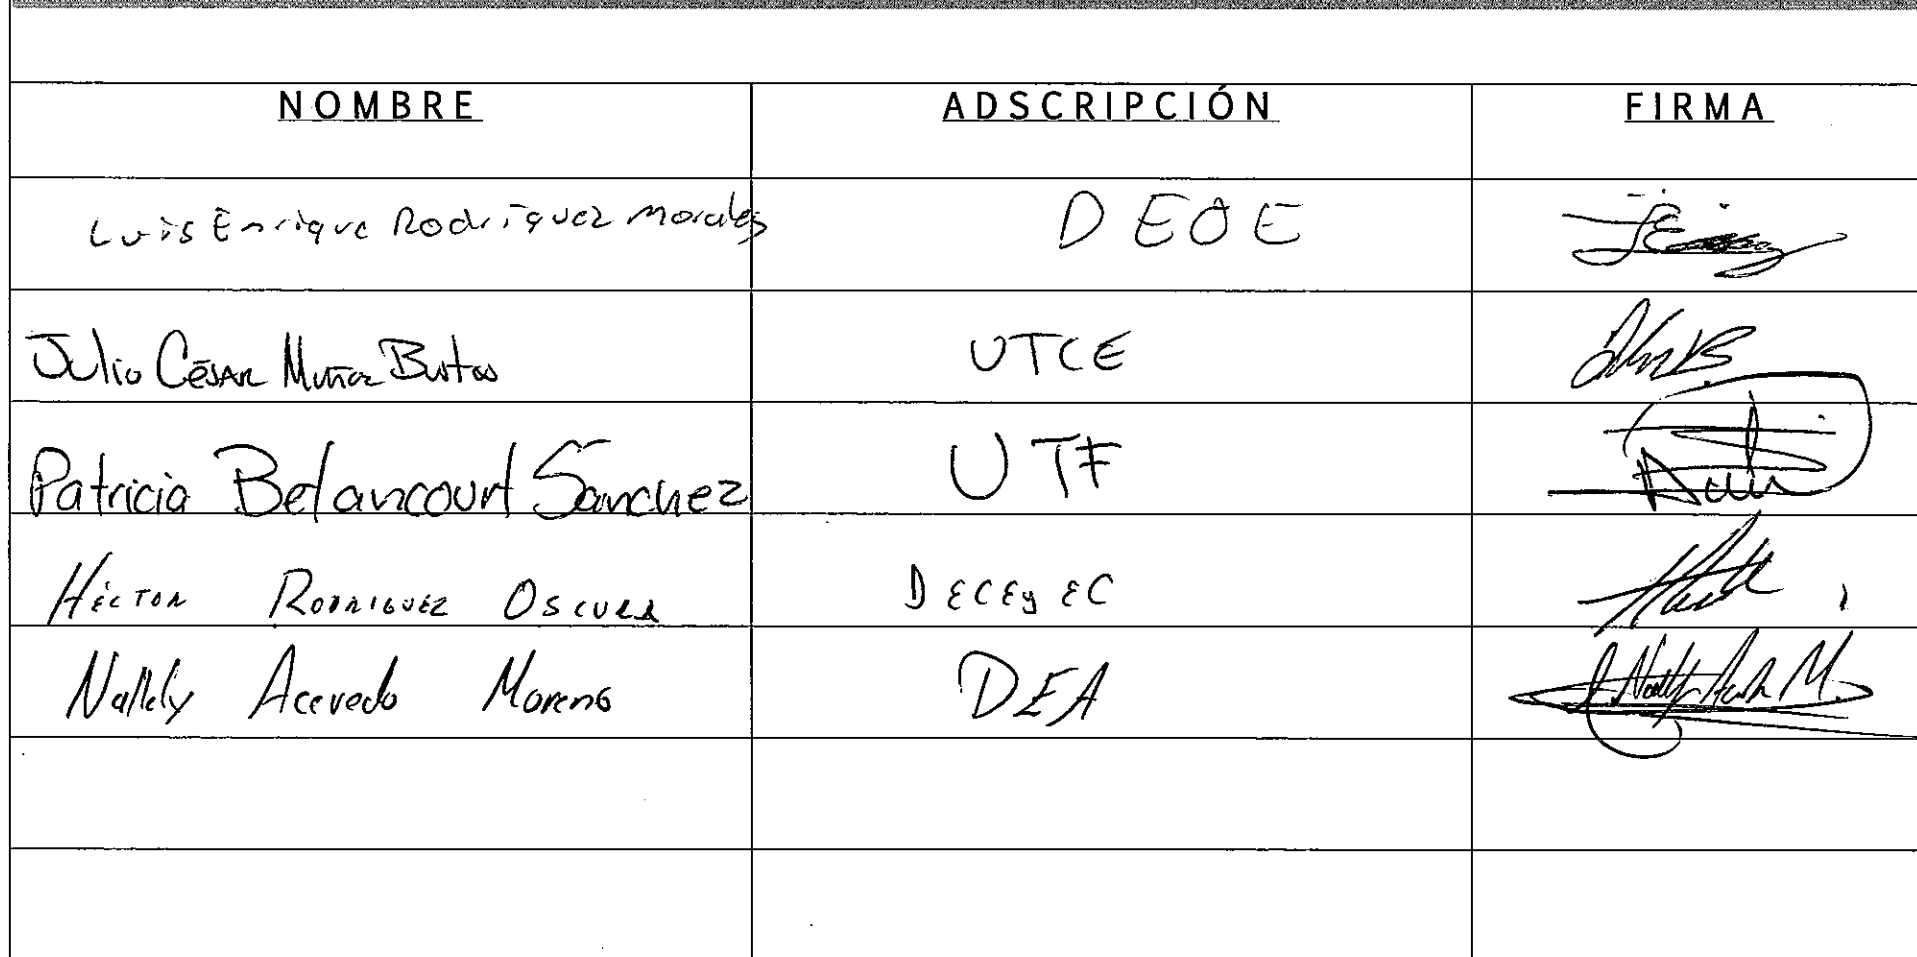 NOMBRE ADSCRIPCIÓN FIRMA
Luis Enrique Rodríguez Morales DEOE
Julio César Muñoz Bustos UTCE
Patricia Betancourt Sánchez UTF
Héctor Rodríguez DECEyEC
Nallely Acevedo Moreno DEA